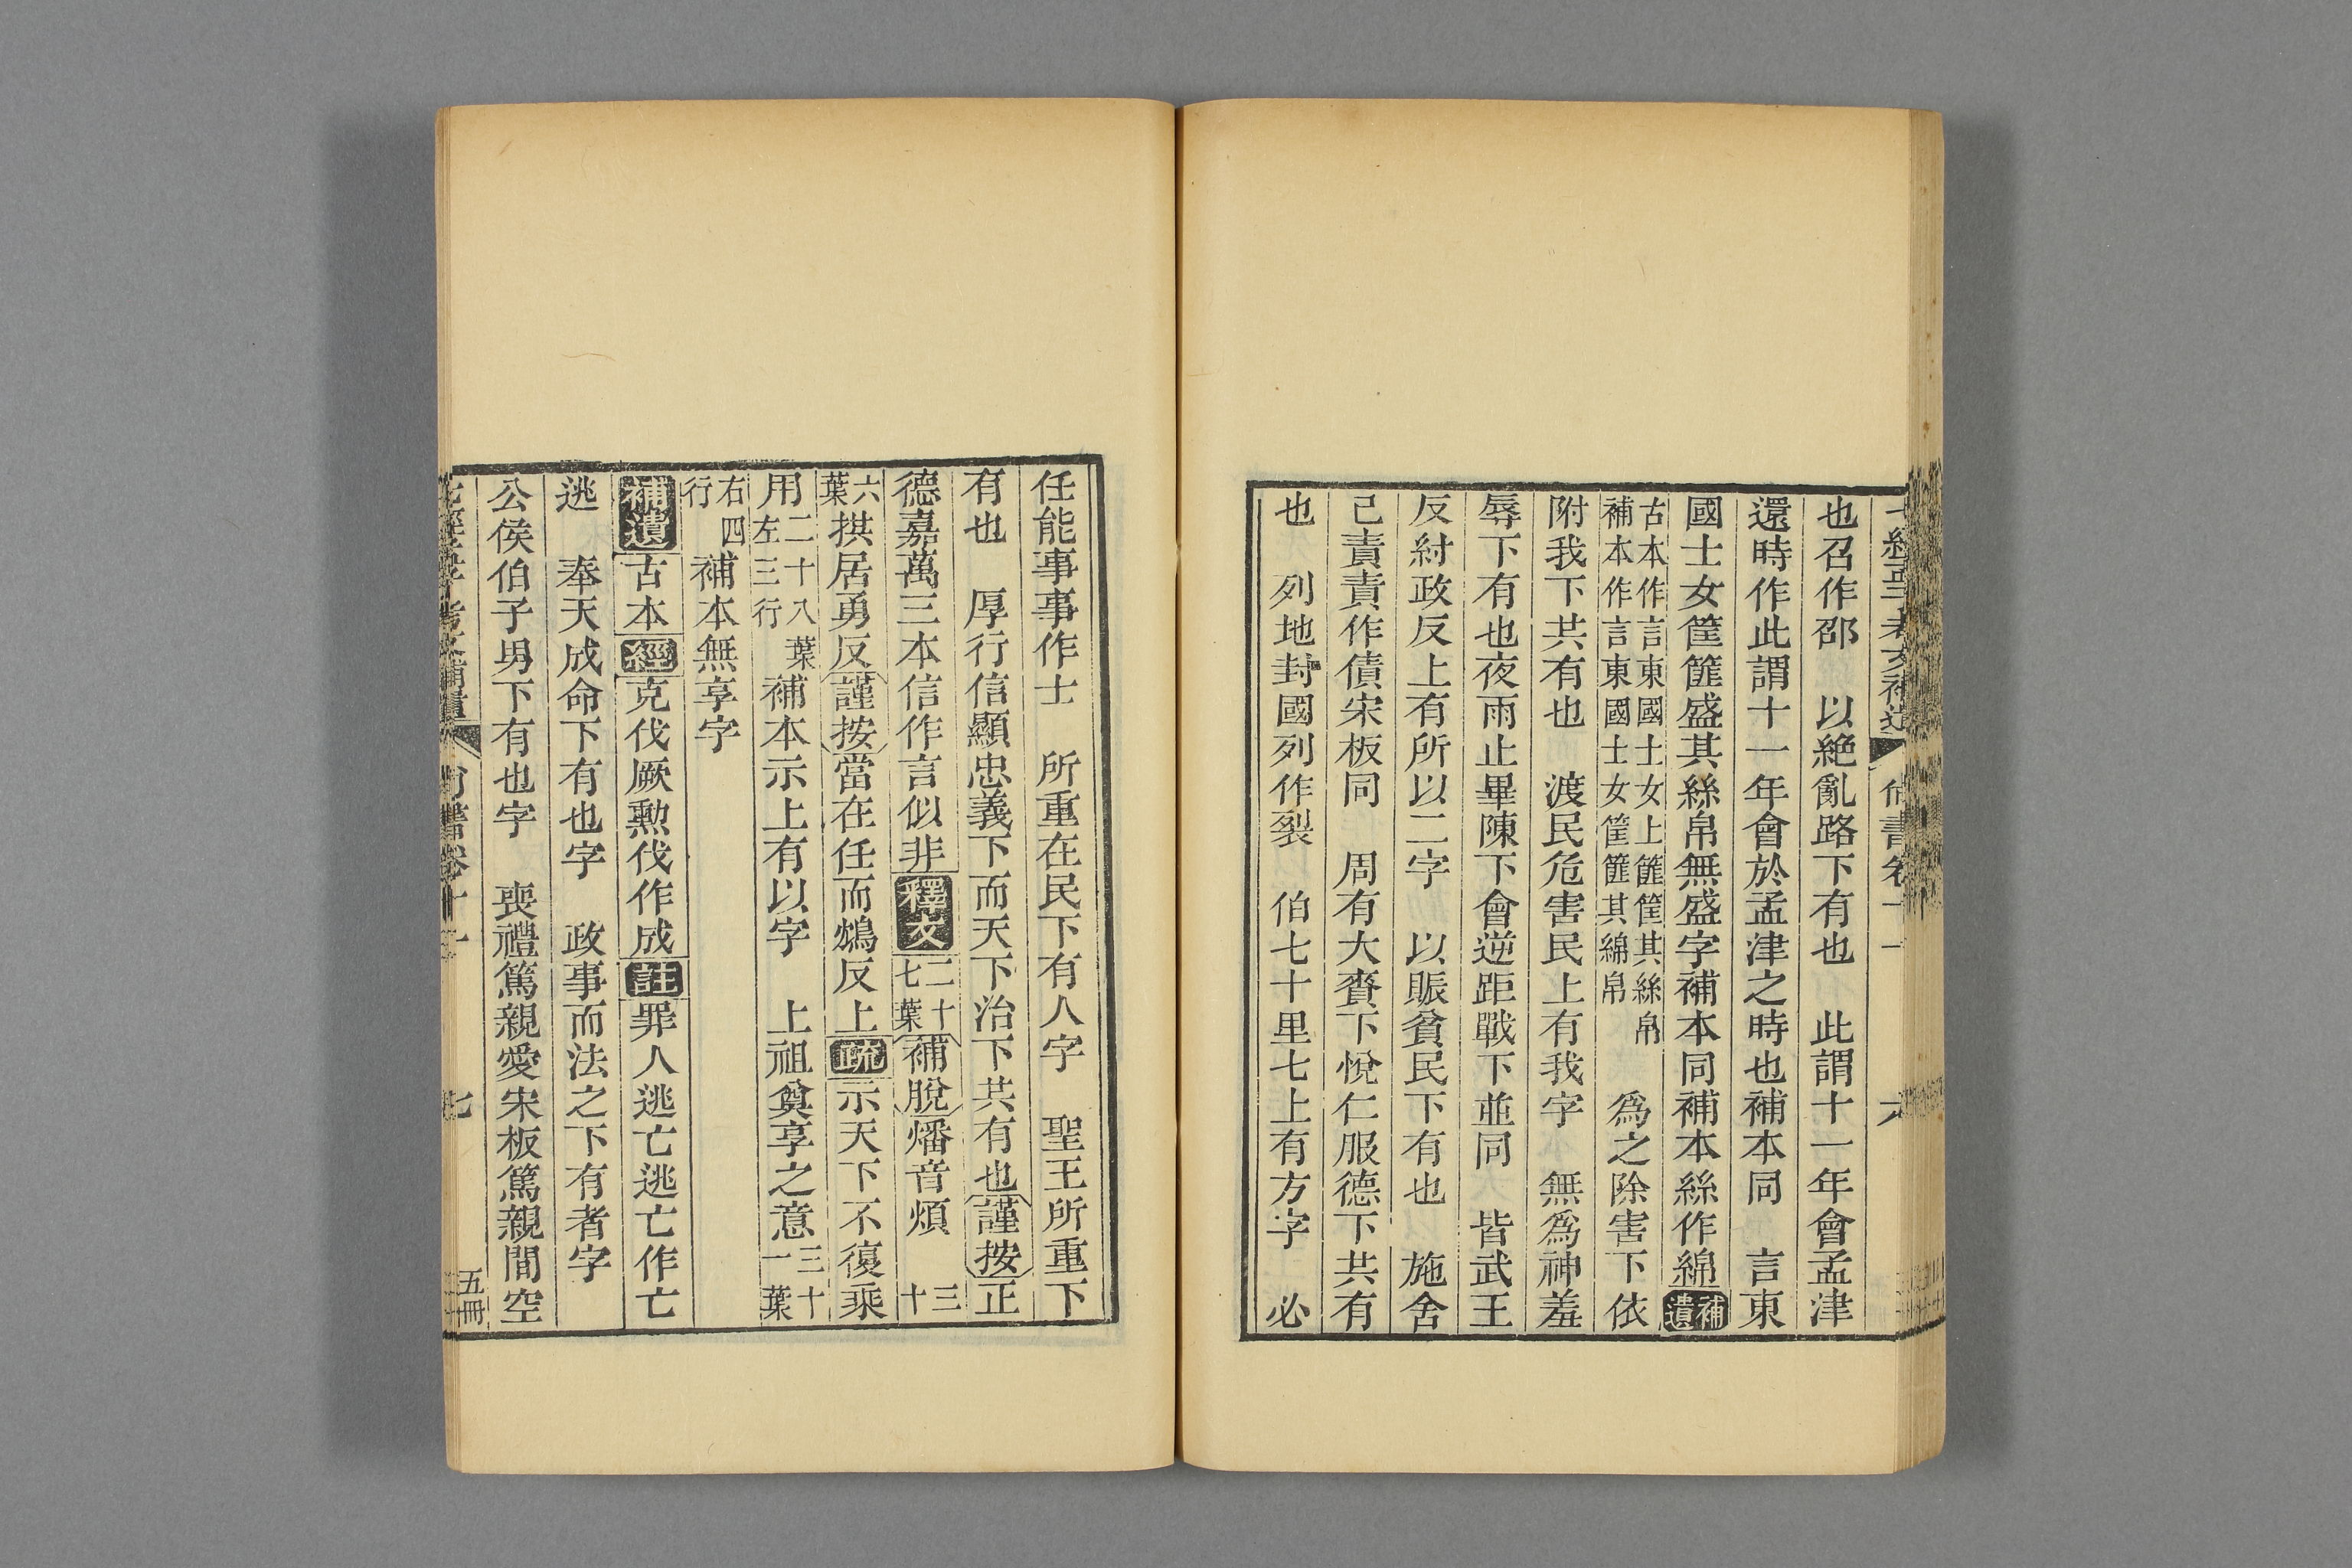 也召作邵　以絶亂路下有也　此謂十一年會孟津
還時作此謂十一年會於孟津之時也補本同　言東
國士女筐篚盛其絲帛無盛字補本同補本絲作綿補遺
古本作言東國士女上篚筐其絲帛
補本作言東國士女筐篚其綿帛
爲之除害下依
附我下共有也　渡民危害民上有我字　無爲神羞
辱下有也夜雨止畢陳下會逆距戰下並同　皆武王
反紂政反上有所以二字　以賑貧民下有也　施舍
己責責作債宋板同　周有大賚下悅仁服德下共有
也　列地封國列作裂　伯七十里七上有方字　必
任能事事作士　所重在民下有人字　聖王所重下
有也　厚行信顯忠義下而天下治下共有也謹按正
德嘉萬三本信作言似非釋文二十七葉補脫燔音煩　三十
六葉拱居勇反謹按當在任而鴆反上疏示天下不復乘
用二十八葉左三行補本示上有以字　上祖奠享之意三十一葉
右四行補本無享字
補遺古本經克伐厥勲伐作成註罪人逃亡逃亡作亡
逃　奉天成命下有也字　政事而法之下有者字
公侯伯子男下有也字　喪禮篤親愛宋板篤親間空
五冊